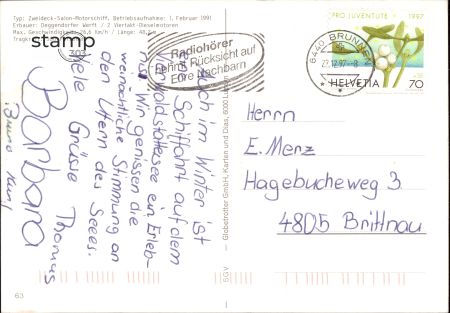 Typ: Zweideck-Salon-Motorschiff, Betriebsaufnahme: 1. Februar 1991
Erbauer: Deggendorfer Werft / 2 Viertakt-Dieselmotoren
Max. Geschwindigkeit 26,6 km/h / Länge: 48,
Tragkr
stamp
303
Radiohörer
nehmt Rücksicht auf
Eure Nachbarn
6440 BRUNNEN
27.12.97-8
PRO JUVENTUTE 1997
HELVETIA 70
Auch im Winter ist
eine Schiffahrt auf dem
Vierwaldstättersee ein Erleb-
nis. Wir geniessen die
weihnächtliche Stimmung an
den Ufern des Sees.
Viele Grüsse Thomas
Barbara
Herrn
E. Merz
Hagebucheweg 3
4805 Brittnau
© Globetrotter GmbH, Karten und Dias, 6000 Luzern
SGV
63